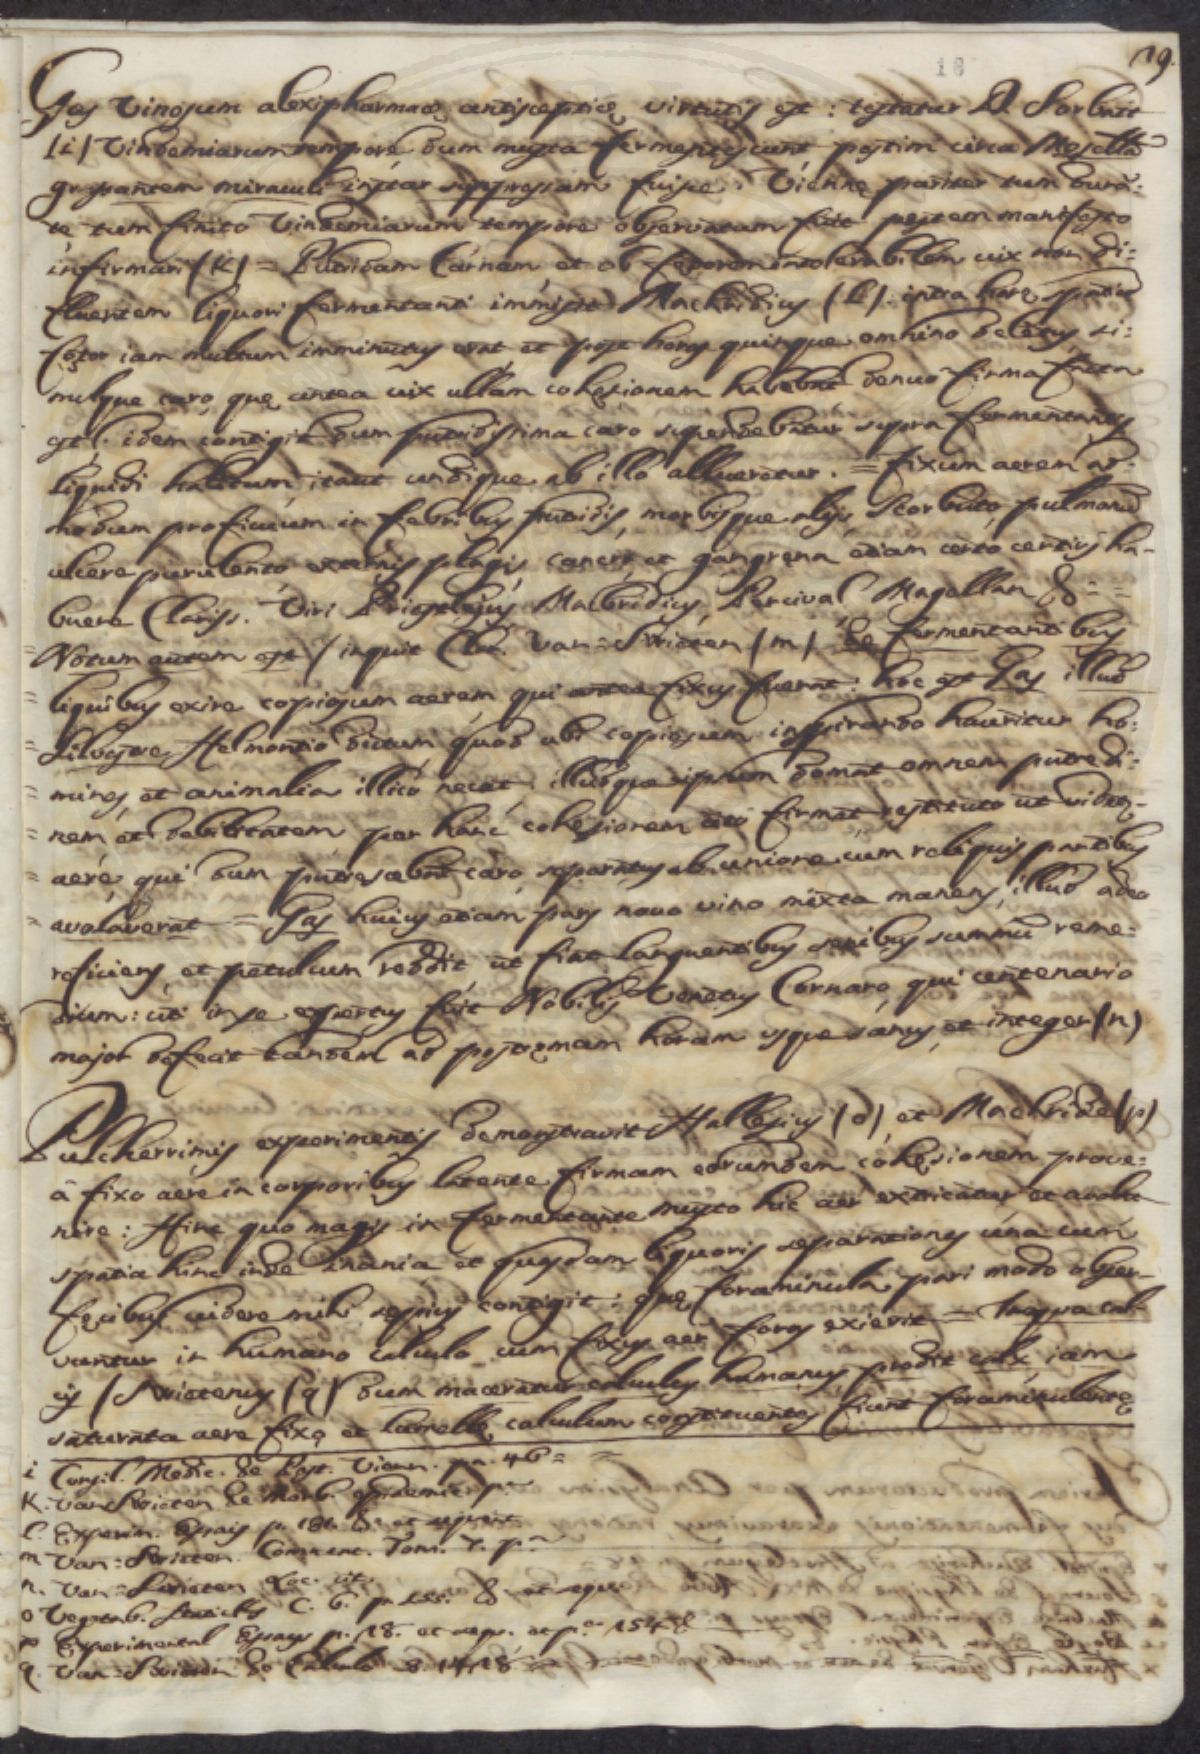 18
19.
Gas Vinosum alexipharmacę antisepticę virtutis est: testatur D. Sorbait
(i) Vindemiarum tempore, dum musta fermentescunt pestim circa Mosellã
grassantem miraculi instar suppressam fuisse. Viennę pariter tum durã:
te tum finito Vindemiarum tempore observatum fuit pestem manifesto
infirmari (K) = Putridam Carnem et ob fętorem intolerabilem vix non di:
ffluentem liquori fermentanti immisit Macbridius (L). intra horę spatiũ
fętor iam multum imminutus erat et post horas quinque omnino deletus, si:
mulque caro, quę antea vix ullam cohęsionem habebat denuo firma facta
est. idem contigit dum putridissima caro suspendebatur supra fermentantis
liquidi halitum, itaut undique ab illo allueretur. = Fixum aerem ad:
modum proficuum in febribus putridis, morbisque alijs Scorbuto, pulmonũ
ulcere purulento, externis plagis, cancro et gangrena etiam certo certius ha-
buere Clariss. Viri Priestlejus, Macbridius, Percival, Magellan &: =
= Notum autem est (inquit Cl. Van-Swieten (m) de fermentantibus
= liquidibus exire copiosum aerem, qui antea fixus fuerat: hoc est Gas illud
= Silvestre Helmontio dictum, quod ubi copiosum inspirando hauritur ho:
= mines, et animalia illico necat, illudque ipsum domat omnem putredi:
= nem et debilitatem per hanc cohęsionem cito firmat restituto ut videtr-
= aere, qui dum putrescebat caro, separatus ab unione cum reliquis partibus
= avolaverat = Gas huius etiam pars novo vino mixta manens, illud adeo
reficiens, et petulcum reddit ut fiat languentibus senibus summũ reme:
dium: uti in se expertus fuit Nobilis Venetus Cornaro, qui centenario
major defecit tandem ad postremam horam usque sanus, et integer (n)
Pulcherrimis experimentis demonstravit Hallesius (o) et Macbride (p)
â fixo aere in corporibus latente firmam eorundem cohęsionem prove:
nire: Hinc quo magis in fermentante musto hic aer extricatur et avolat
spatia hinc inde inania, et quasdam liquoris separationes una cum
fęcibus videre mihi sępius contigit; quę foraminula pari modo obser-
vantur in humano calculo cum fixus aer foras exierit = In aqua cal-
cis (Swietenus (q) dum maceratur calculus humanus prodit calx iam
saturata aere fixo et lamellę calculum constituentes fiunt foraminulentę
i Consil. Medic. de Pest. Vienn. pa. 46 =
K. Van Swieten de Morb. epidemic. p.
l. Experim. Essais p. 181. & et sequent
m Van-Swieten. Comment. Tom. V. p.
n. Van-Swieten Loc. cit.
o Vegetab. Staticks C. 6. p. 155. & et sequ.
p Experimental Essays p. 18. et sequ. et p. 154 &
q. Van-Swieten de Calculo §. 1418